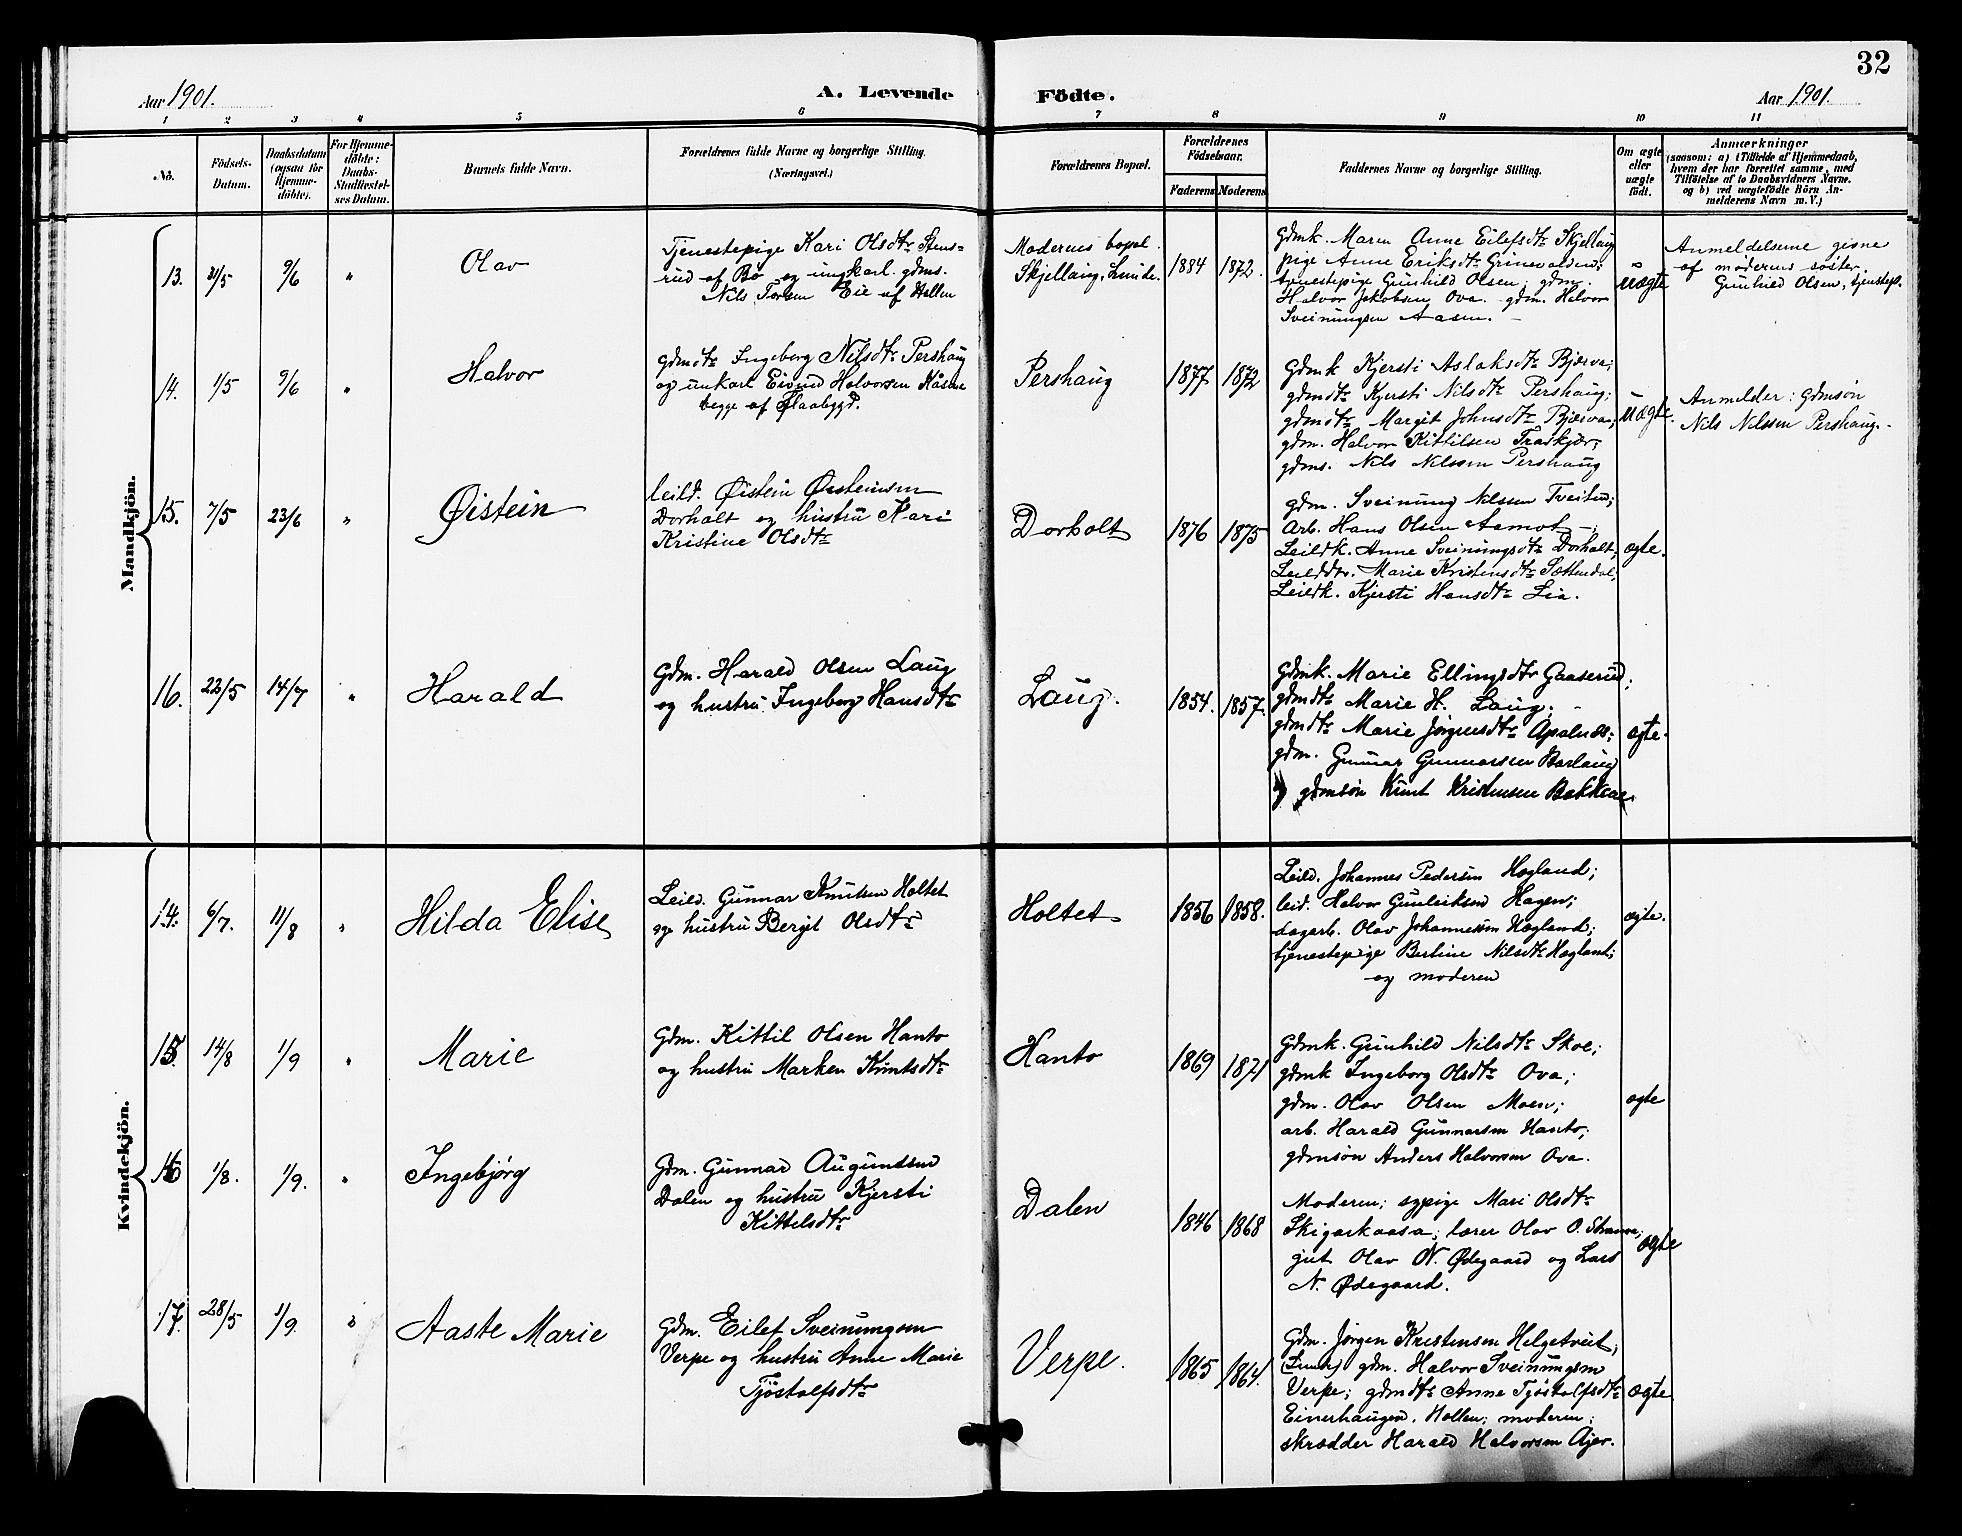 32
Aar 1901.
A. Levende
Födte.
Aar 1901.
1 2 3 4 5 6 7 8 9 10 11
No.
Födsels-
Datum.
Daabsdatum
(ogsaa for
Hjemme-
döbte).
For Hjemme-
döbte:
Daabs-
Stadfæstel-
ses Datum.
Barnets fulde Navn.
Forældrenes fulde Navne og borgerlige Stilling.
(Næringsvei.)
Forældrenes Bopæl.
Forældrenes
Födselsaar.
Faderens
Moderens
Faddernes Navne og borgerlige Stilling.
Om ægte
eller
uægte
födt.
Anmærkninger
(saasom: a) i Tilfælde af Hjemmedaab,
hvem der har forrettet samme, med
Tilföielse af to Daabsvidners Navne.
og b) ved uægtefödte Börn An-
melderens Navn m. V.)
Mandkjön.
13. 31/5 9/6 "
Olav
Tjenestepige Kari Olsdtr Stens-
rud af Bø og ungkarl. gdms.
Nils Torsen Eie af Hollen
Moderens bopæl.
Skjellaug, Lunde.
1884 1872.
Gdmk. Maren Anne Eilefsdtr Skjellaug
pige Anne Eriksdtr
tjenestepige Gunhild Olsen; gdm.
Halvor Jakobsen Ova. gdm. Halvor
Sveinungsen Aasen.
uægte
Anmeldelserne givne
af moderens søster
Gunhild Olsen, tjenestepl.
14. 1/5 9/6 "
Halvor
gdmdtr Ingeborg Nilsdtr Pershaug
og unkarl Eivind Halvorsen Kåsene
begge af Flaabygd.
Pershaug
1877 1872
Gdmk Kjersti Aslaksdtr Bjerva;
gdmdtr Kjersti Nilsdtr Pershaug;
gdmdtr Margit Johnsdtr Bjerva;
gdm. Halvor Kittilsen
gdms. Nils Nilssen Pershaug
uægte.
Anmelder: Gdmsøn
Nils Nilssen Pershaug.
15. 7/5 23/6 "
Øistein
leild. Øistein Øisteinsen
Dorholt og hustru Kari
Kristine Olsdtr
Dorholt
1876 1875
gdm. Sveinung Nilssen Tveiten;
Arb. Hans Olsen Aamot
Leildk. Anne Sveinungsdtr Dorholt,
Leilddtr. Marie Kristensdtr Sættendal,
Leildk. Kjersti Hansdtr Lia.
ægte.
16. 22/5 14/7 "
Harald
Gdm. Harald Olsen Laug
og hustru Ingeborg Hansdtr
Laug.
1854. 1857.
Gdmk. Marie Ellingsdtr Gaaserud;
gdmdtr Marie H. Laug;
gdmdtr Marie Jørgensdtr Apalnes:
gdm. Gunnar Gunnarssen Barlaug
gdmsøn Knut Kristensen
ægte.
Kvindekjön.
14. 6/7. 11/8 "
Hilda Elise
Leild. Gunnar Knutsen Holtet
og hustru Bergit Olsdtr
Holtet
1856 1858.
Leild. Johannes Pedersen Hogland;
leild. Halvor Gunleiksen Hagen;
dagarb. Olav Johannessen Hogland;
tjenestepige Bertine Nilsdtr Hogland;
og moderen
ægte.
15. 14/8 1/9 "
Marie
Gdm. Kittil Olsen Hanto
og hustru Marken Knutsdtr
Hanto
1869 1871
Gdmk. Gunhild Nilsdtr Skoe;
gdmk Ingeborg Olsdtr Ova;
gdm. Olav Olsen Moen;
arb. Harald Gunnarsen Hanto;
gdmsøn Anders Halvorsen Ova.
ægte
16 1/8. 1/9. "
Ingebjørg
Gdm. Gunnar Augundsen
Dalen og hustru Kjersti
Kittelsdtr
Dalen
1846 1868
Moderen; sypige Mari Olsdtr
Skigarkaasa; lærer Olav O.
gut Olav N. Ødegaard og Lars
N. Ødegaard.
ægte
17. 28/5 1/9. "
Aaste Marie
Gdm. Eilef Sveinungsen
Verpe og hustru Anne Marie
Tjøstolfsdtr
Verpe.
1865 1864.
Gdm. Jørgen Kristensen Helgetveit,
(Lunde) gdm. Halvor Sveinungsen
Verpe; gdmdtr Anne Tjøstolfsdtr
Einerhaugen, Hollen; moderen;
skrædder Harald Halvorsen Ajer.
ægte